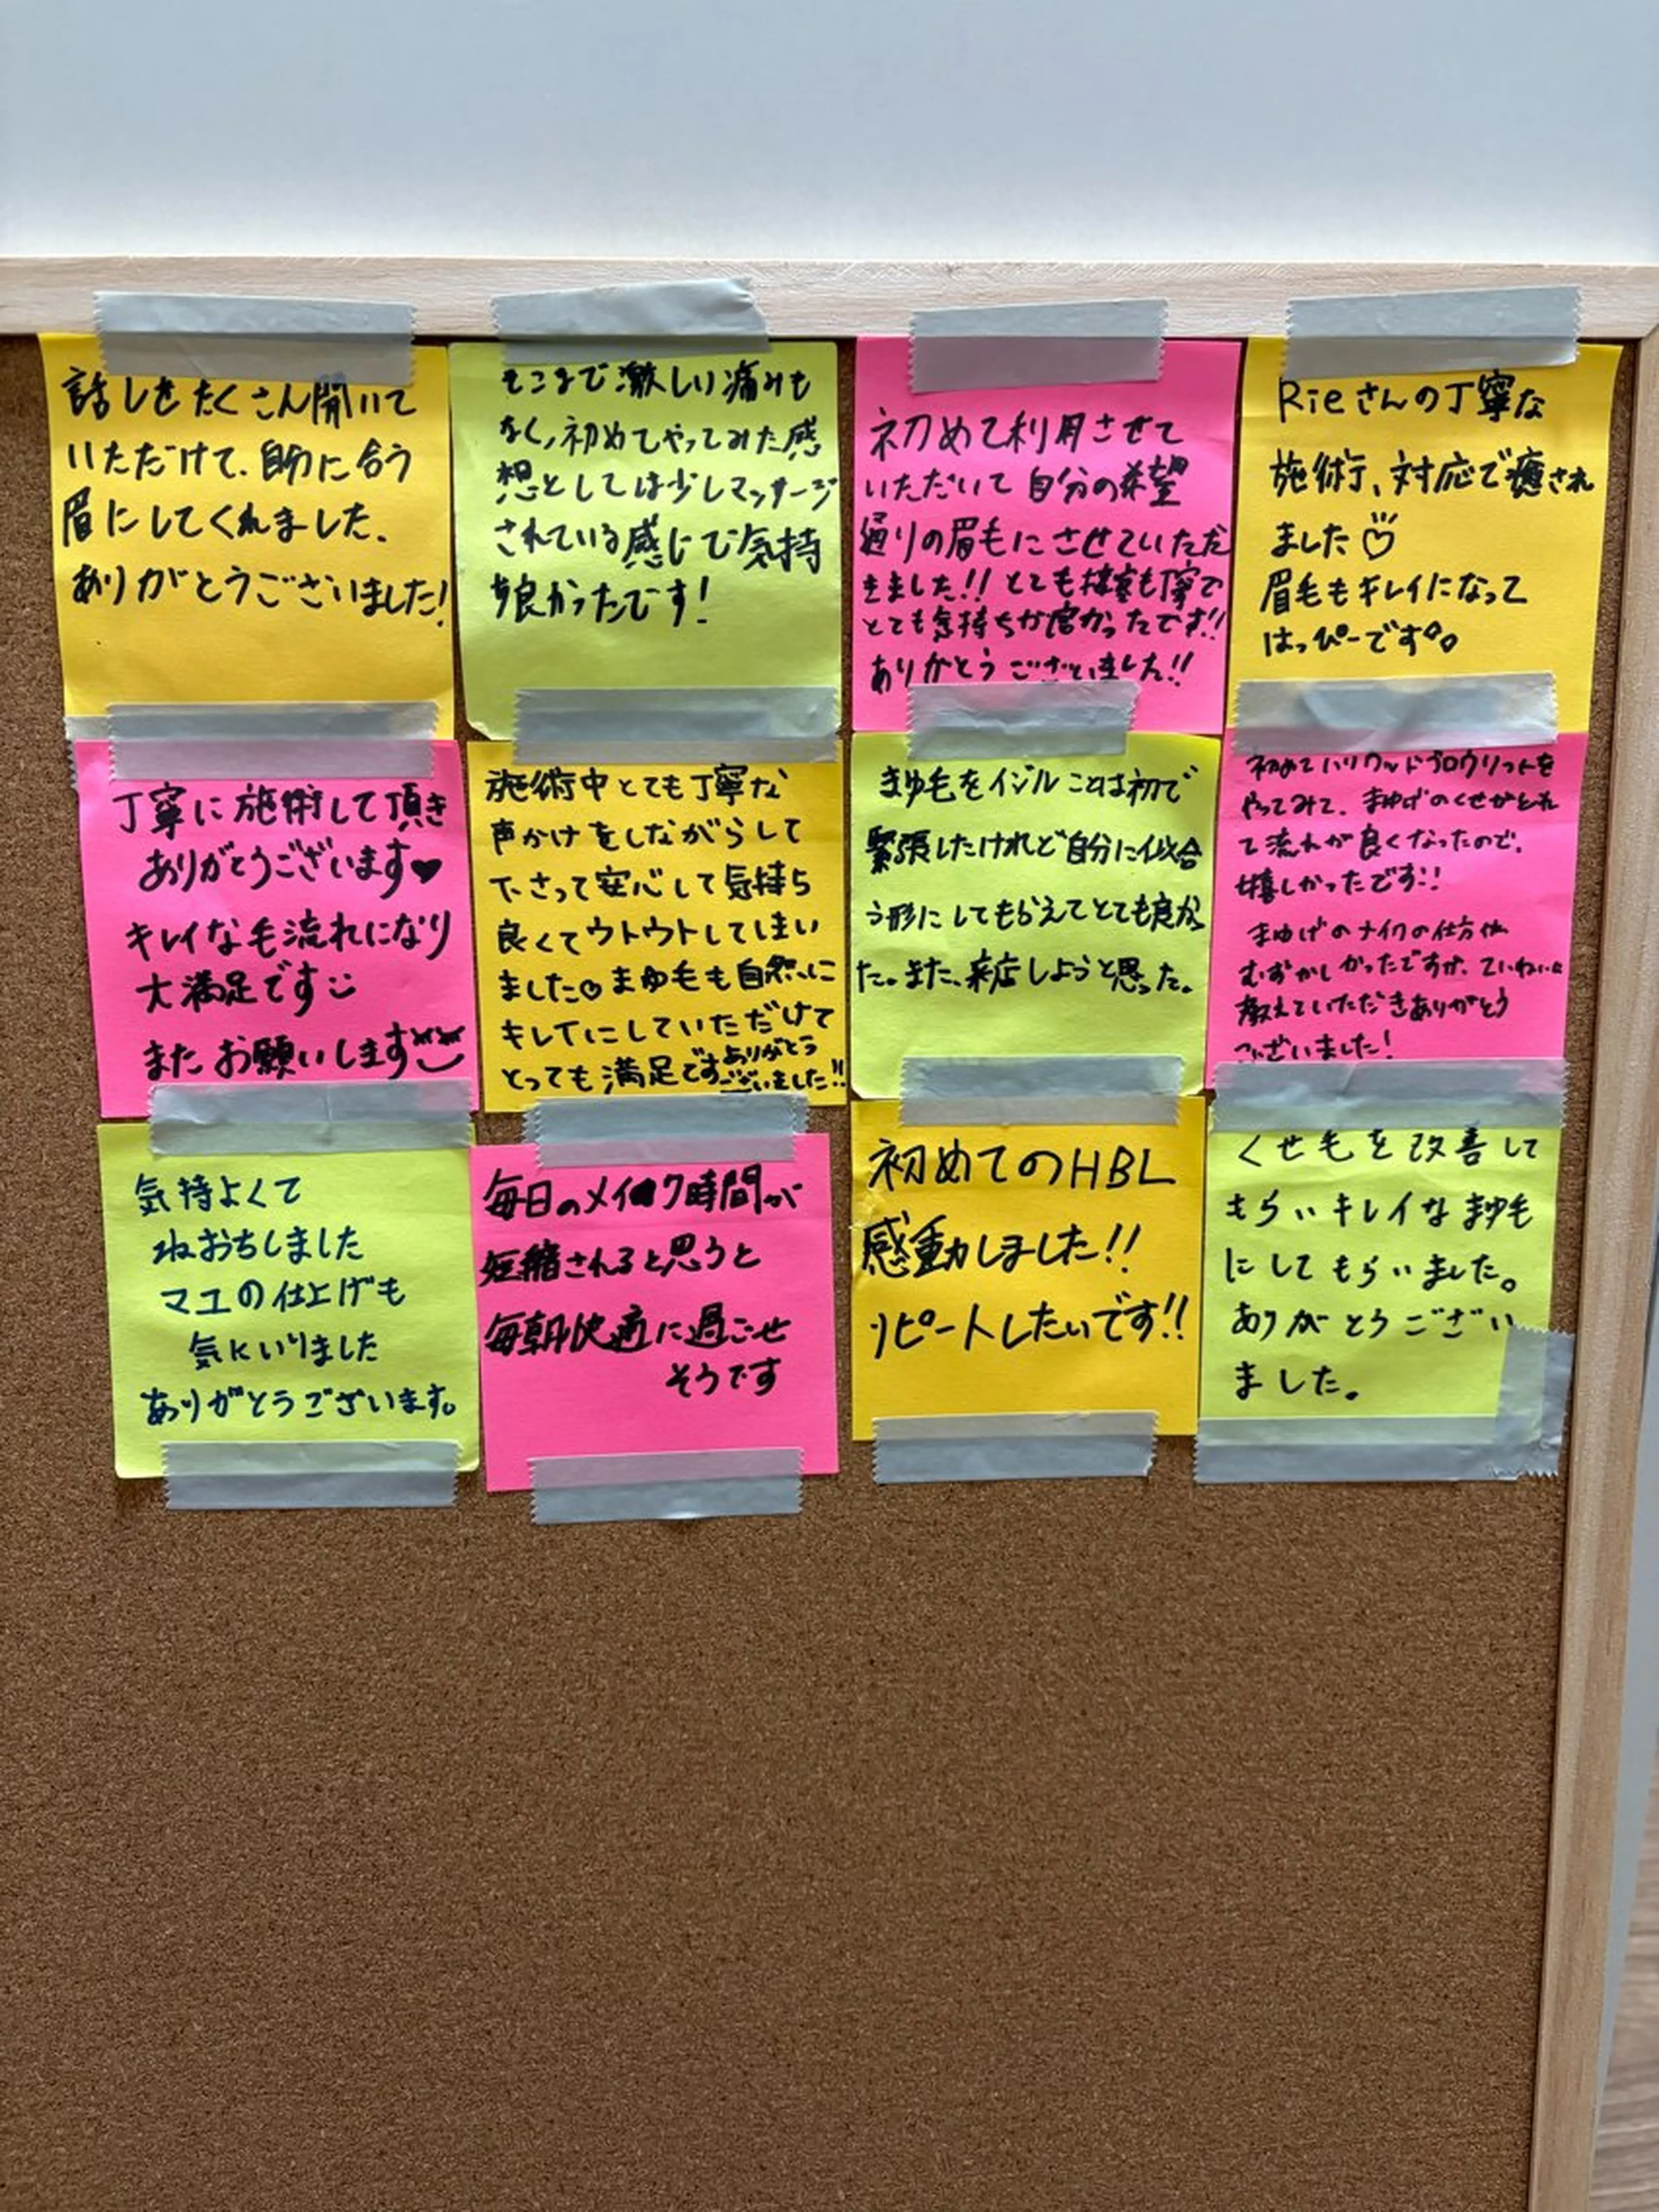 話しをたくさん聞いて
いただけて、自分に合う
眉にしてくれました.
ありがとうございました!
そこまで激しい痛みも
なく、初めてやってみた感
想としては少しマッサージ
されている感じで気持
ち良かったです!
初めて利用させて
いただいて自分の希望
通りの眉毛にさせていただ
きました!! とても接客も丁寧で
とても気持ちが良かったです!!
ありがとうございました!!
Rieさんの丁寧な
施術、対応で癒され
ました♡
眉毛もキレイになって
はっぴーです
丁寧に施術して頂き
ありがとうございます♥
キレイな毛流れになり
大満足です
またお願いします
施術中とても丁寧な
声かけをしながらして
下さって安心して気持ち
良くてウトウトしてしまい
ました♡まゆ毛も自然に
キレイにしていただけて
とっても満足ですありがとう
ございました!!
まゆ毛をイジルことは初で
緊張したけれど自分に似合
う形にしてもらえてとても良かっ
た。また、来店しようと思った。
初めてハリウッドブロウリフトを
やってみて、まゆげのくせがとれ
て流れが良くなったので、
嬉しかったです!!
まゆげのナイクの仕方が
むずかしかったですが、ていねいに
教えていただきありがとう
ございました!
気持よくて
ねおちしました
マユの仕上げも
気にいりました
ありがとうございます。
毎日のメイク時間が
短縮されると思うと
毎朝快適に過ごせ
そうです
初めてのHBL
感動しました!!
リピートしたいです!!
くせ毛を改善して
もらいキレイなまゆ毛
にしてもらいました。
ありがとうござい
ました。